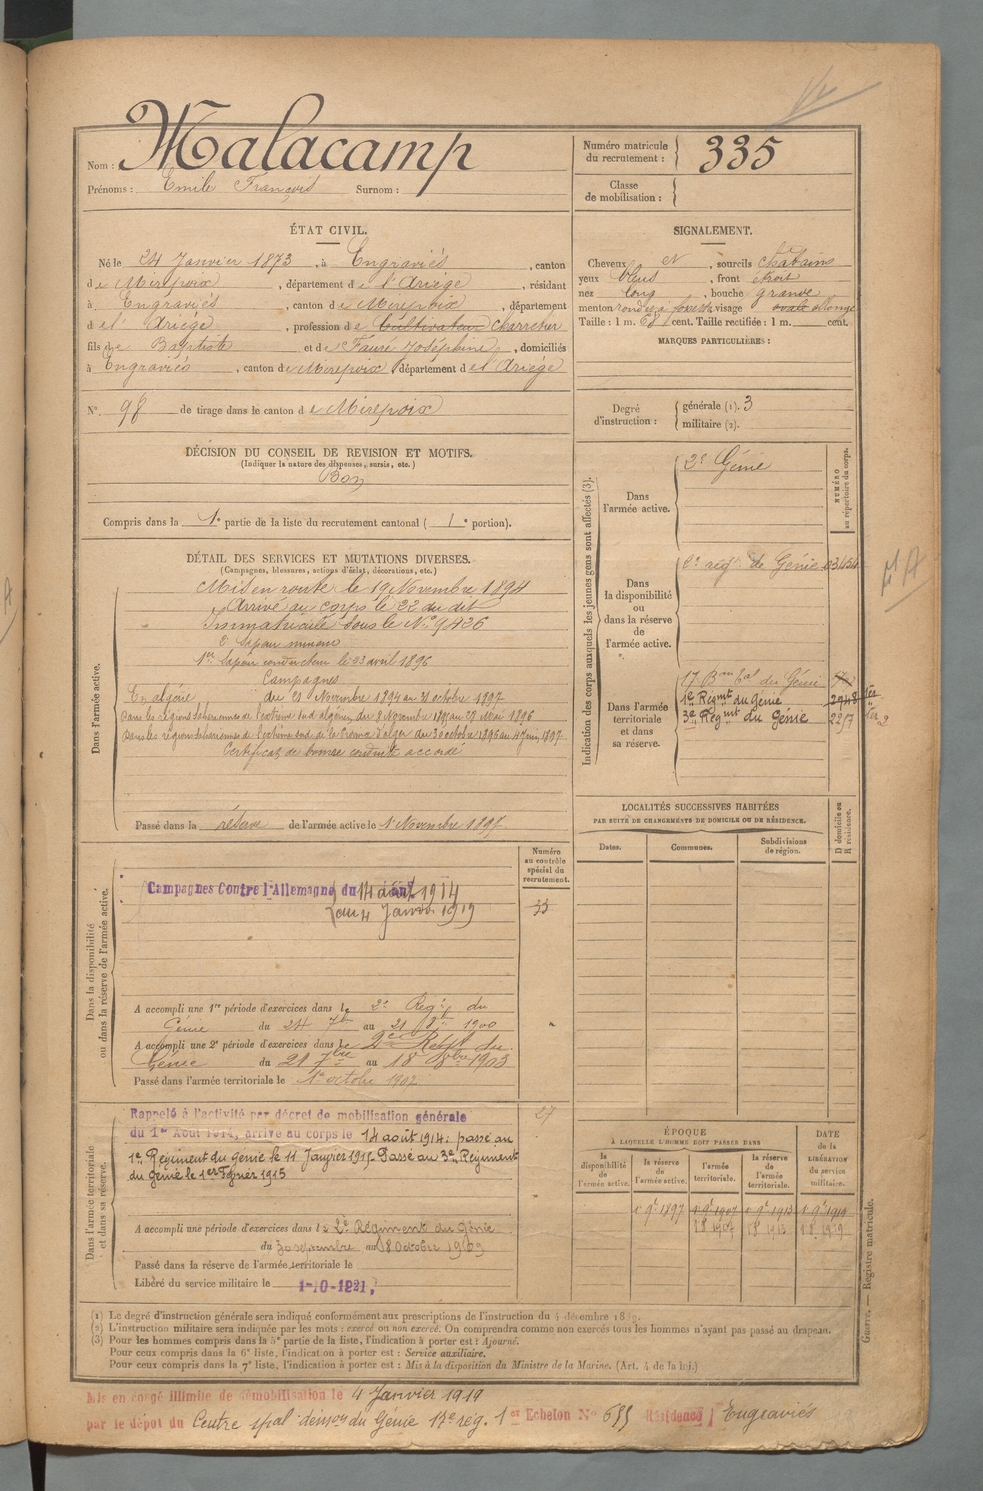 Nom : Malacamp
Prénoms : Emile François Surnom :
Numéro matricule du recrutement : 335
Classe de mobilisation :
ÉTAT CIVIL.
Né le 24 Janvier 1873, à Engraviès, canton
de Mirepoix, département de l'Ariège, résidant
à Engraviès, canton de Mirepoix, département
de l'Ariège, profession de Cultivateur Charretier
fils de Baptiste et de Fauré Joséphine, domiciliés
à Engraviès, canton de Mirepoix département de l'Ariège
N° 98 de tirage dans le canton de Mirepoix
SIGNALEMENT.
Cheveux et, sourcils chatains
yeux bleus, front étroit
nez long, bouche grande
menton rond visage ovale allongé
Taille : 1 m. 68 cent. Taille rectifiée : 1 m. cent.
MARQUES PARTICULIÈRES :
Degré d'instruction : générale (1). 3
militaire (2).
DÉCISION DU CONSEIL DE REVISION ET MOTIFS.
(Indiquer la nature des dispenses, sursis, etc.)
Bon
Compris dans la 1e partie de la liste du recrutement cantonal (1e portion).
DÉTAIL DES SERVICES ET MUTATIONS DIVERSES.
(Campagnes, blessures, actions d'éclat, décorations, etc.)
Dans l'armée active.
Mis en route le 19 Novembre 1894
Arrivé au corps le 22 du dit
Immatriculé sous le N° 9426
2e Sapeur mineur
1er Sapeur conducteur le 23 avril 1896
Campagnes
En algérie du 21 Novembre 1894 au 31 octobre 1897
Certificat de bonne conduite accordé
Passé dans la réserve de l'armée active le 1 Novembre 1897
Indication des corps auxquels les jeunes gens sont affectés (3).
NUMÉRO au répertoire du corps.
Dans l'armée active.
2e Génie
Dans la disponibilité ou dans la réserve de l'armée active.
2e régt de Génie
Dans l'armée territoriale et dans sa réserve.
17 Bon Tal du Génie
1er Régmt du Génie 2948
3e Régmt du Génie 2257
LOCALITÉS SUCCESSIVES HABITÉES
PAR SUITE DE CHANGEMENTS DE DOMICILE OU DE RÉSIDENCE.
D domicile ou R résidence.
Dates. Communes. Subdivisions de région.
Dans la disponibilité ou dans la réserve de l'armée active.
Numéro au contrôle spécial du recrutement.
Campagnes Contre l'Allemagne du 14 août 1914
au 4 Janvier 1919
A accompli une 1re période d'exercices dans le 2e Régt du
Génie du 24 7bre au 21 8bre 1900
A accompli une 2e période d'exercices dans le 2e Regt du
Génie du 21 7bre au 18 8bre 1903
Passé dans l'armée territoriale le 1er octobre 1907
Dans l'armée territoriale et dans sa réserve.
27
Rappelé à l'activité par décret de mobilisation générale
du 1er Août 1914, arrivé au corps le 14 août 1914. passé au
1er Régiment du génie le 11 Janvier 1915 Passé au 3e Régiment
du Génie le 1er Février 1915
A accompli une période d'exercices dans le 2e Régiment du Génie
du 30 septembre au 8 Octobre 1909
Passé dans la réserve de l'armée territoriale le
Libéré du service militaire le 1-10-1921
ÉPOQUE
À LAQUELLE L'HOMME DOIT PASSER DANS
DATE de la LIBÉRATION du service militaire.
la disponibilité de l'armée active. la réserve de l'armée active. l'armée territoriale. la réserve de l'armée territoriale.
1 9e 1897 1 9e 1907 1 9e 1913 1 9e 1919
(1) Le degré d'instruction générale sera indiqué conformément aux prescriptions de l'instruction du 4 décembre 1889.
(2) L'instruction militaire sera indiquée par les mots : exercé ou non exercé. On comprendra comme non exercés tous les hommes n'ayant pas passé au drapeau.
(3) Pour les hommes compris dans la 5e partie de la liste, l'indication à porter est : Ajourné.
Pour ceux compris dans la 6e liste, l'indication à porter est : Service auxiliaire.
Pour ceux compris dans la 7e liste, l'indication à porter est : Mis à la disposition du Ministre de la Marine. (Art. 4 de la loi.)
Guerre. — Registre matricule.
Mis en congé illimité de démobilisation le 4 Janvier 1919
par le dépôt du Centre du Génie 17e rég. 1er Echelon N° 655 Résidence Engraviès